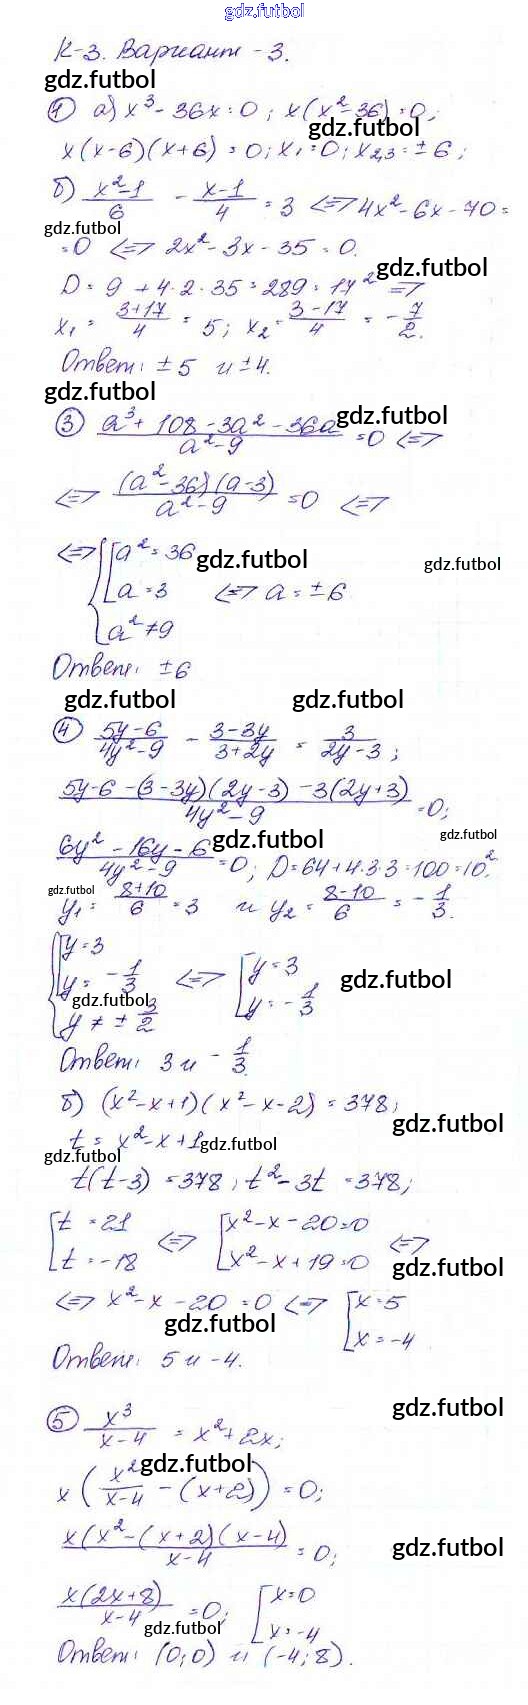 gdz.futbol
К-3. Вариант - 3.
gdz.futbol
① а) x³ - 36x = 0; x(x² - 36) = 0;
gdz.futbol
x(x-6)(x+6) = 0; x₁ = 0; x₂,₃ = ± 6;
б) (x²-1)/6 - (x-1)/4 = 3 <=> 4x² - 6x - 70 =
gdz.futbol
= 0 <=> 2x² - 3x - 35 = 0.
gdz.futbol
D = 9 + 4·2·35 = 289 = 17² =>
x₁ = (3+17)/4 = 5; x₂ = (3-17)/4 = -7/2.
Ответ: ± 5 и ±4.
gdz.futbol
③ (a³ + 108 - 3a² - 36a)/(a² - 9) = 0 <=>
gdz.futbol
<=> (a² - 36)(a - 3)/(a² - 9) = 0 <=>
<=> { [ a² = 36
gdz.futbol
gdz.futbol
a = 3 <=> a = ± 6
a² ≠ 9
Ответ: ±6
gdz.futbol
gdz.futbol
④ (5y-6)/(4y²-9) - (3-3y)/(3+2y) = 3/(2y-3);
(5y-6-(3-3y)(2y-3)-3(2y+3))/(4y²-9) = 0;
gdz.futbol
gdz.futbol
(6y² - 16y - 6)/(4y² - 9) = 0; D = 64 + 4·3·3 = 100 = 10².
gdz.futbol
y₁ = (8+10)/6 = 3 и y₂ = (8-10)/6 = -1/3.
{ [ y = 3
y = -1/3 <=> [ y = 3
gdz.futbol
y = -1/3
gdz.futbol
y ≠ ± 3/2
Ответ: 3 и -1/3.
б) (x²-x+1)(x²-x-2) = 378;
gdz.futbol
t = x² - x + 1
gdz.futbol
gdz.futbol
t(t-3) = 378; t² - 3t = 378;
[ t = 21 <=> [ x² - x - 20 = 0 <=>
t = -18 x² - x + 19 = 0
gdz.futbol
<=> x² - x - 20 = 0 <=> [ x = 5
gdz.futbol
x = -4
Ответ: 5 и -4.
gdz.futbol
⑤ x³/(x-4) = x² + 2x;
gdz.futbol
x(x²/(x-4) - (x+2)) = 0;
x(x² - (x+2)(x-4)/(x-4) = 0;
gdz.futbol
x(2x+8)/(x-4) = 0; [ x = 0
x = -4
gdz.futbol
Ответ: (0; 0) и (-4; 8).